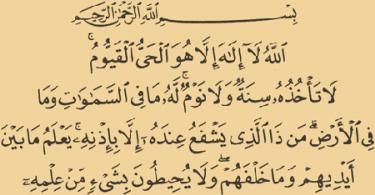 بِسْمِ اللَّهِ الرَّحْمَٰنِ الرَّحِيمِ
اللَّهُ لَا إِلَٰهَ إِلَّا هُوَ الْحَيُّ الْقَيُّومُ ۚ
لَا تَأْخُذُهُ سِنَةٌ وَلَا نَوْمٌ ۚ لَهُ مَا فِي السَّمَاوَاتِ وَمَا
فِي الْأَرْضِ ۗ مَن ذَا الَّذِي يَشْفَعُ عِندَهُ إِلَّا بِإِذْنِهِ ۚ يَعْلَمُ مَا بَيْنَ
أَيْدِيهِمْ وَمَا خَلْفَهُمْ ۖ وَلَا يُحِيطُونَ بِشَيْءٍ مِّنْ عِلْمِهِ